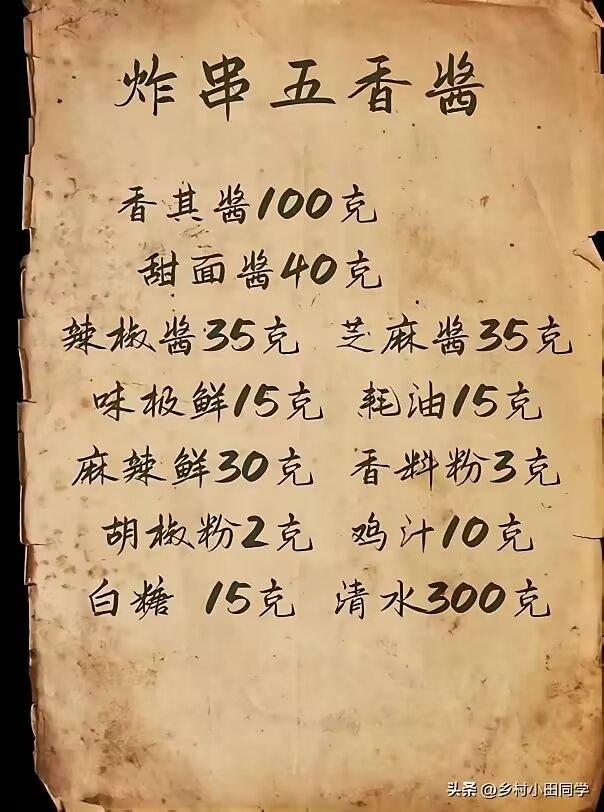 炸串五香酱
香其酱100克
甜面酱40克
辣椒酱35克 芝麻酱35克
味极鲜15克 耗油15克
麻辣鲜30克 香料粉3克
胡椒粉2克 鸡汁10克
白糖 15克 清水300克
头条 @乡村小田同学